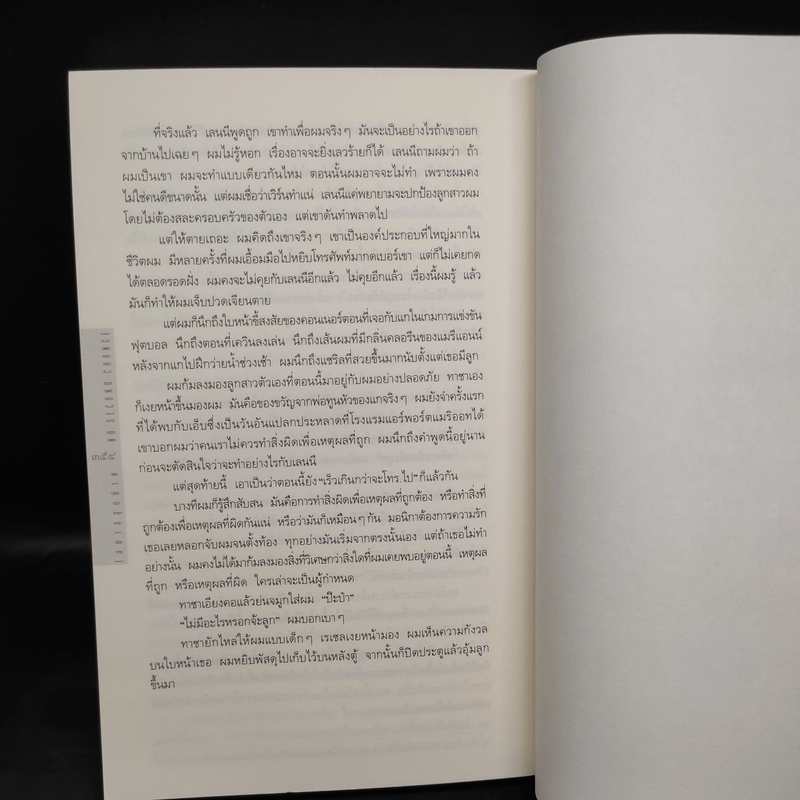 ที่จริงแล้ว เลนนีพูดถูก เขาทำเพื่อผมจริงๆ มันจะเป็นอย่างไรถ้าเขาออก
จากบ้านไปเฉยๆ ผมไม่รู้หอก เรื่องอาจจะยิ่งเลวร้ายก็ได้ เลนนีถามผมว่า ถ้า
ผมเป็นเขา ผมจะทำแบบเดียวกันไหม ตอนนั้นผมอาจจะไม่ทำ เพราะผมคง
ไม่ใช่คนดีขนาดนั้น แต่ผมเชื่อว่าเวิร์นทำแน่ เลนนีแค่พยายามจะปกป้องลูกสาวผม
โดยไม่ต้องสละครอบครัวของตัวเอง แต่เขาดันทำพลาดไป
แต่ให้ตายเถอะ ผมคิดถึงเขาจริงๆ เขาเป็นองค์ประกอบที่ใหญ่มากใน
ชีวิตผม มีหลายครั้งที่ผมเอื้อมมือไปหยิบโทรศัพท์มากดเบอร์เขา แต่ก็ไม่เคยกด
ได้ตลอดรอดฝั่ง ผมคงจะไม่คุยกับเลนนีอีกแล้ว ไม่คุยอีกแล้ว เรื่องนี้ผมรู้ แล้ว
มันก็ทำให้ผมเจ็บปวดเจียนตาย
แต่ผมก็นึกถึงใบหน้าขี้สงสัยของคอนเนอร์ตอนที่เจอกับแกในเกมการแข่งขัน
ฟุตบอล นึกถึงตอนที่เควินลงเล่น นึกถึงเส้นผมที่มีกลิ่นคลอรีนของแมรีแอนน์
หลังจากแกไปฝึกว่ายน้ำช่วงเช้า ผมนึกถึงแชริลที่สวยขึ้นมากนับตั้งแต่เธอมีลูก
ผมก้มลงมองลูกสาวตัวเองที่ตอนนี้มาอยู่กับผมอย่างปลอดภัย ทาซาเอง
ก็เงยหน้าขึ้นมองผม มันคือของขวัญจากพ่อทูนหัวของแกจริงๆ ผมยังจำครั้งแรก
ที่ได้พบกับเอ็บซึ่งเป็นวันอันแปลกประหลาดที่โรงแรมแอร์พอร์ตแมริออทได้
เขาบอกผมว่าคนเราไม่ควรทำสิ่งผิดเพื่อเหตุผลที่ถูก ผมนึกถึงคำพูดนี้อยู่นาน
ก่อนจะตัดสินใจว่าจะทำอย่างไรกับเลนนี
แต่สุดท้ายนี้ เอาเป็นว่าตอนนี้ยัง“เร็วเกินกว่าจะโทร.ไป”ก็แล้วกัน
บางทีผมก็รู้สึกสับสน มันคือการทำสิ่งผิดเพื่อเหตุผลที่ถูกต้อง หรือทำสิ่งที่
ถูกต้องเพื่อเหตุผลที่ผิดกันแน่ หรือว่ามันก็เหมือนๆ กัน มอนิกาต้องการความรัก
เธอเลยหลอกจับผมจนตั้งท้อง ทุกอย่างมันเริ่มจากตรงนั้นเอง แต่ถ้าเธอไม่ทำ
อย่างนั้น ผมคงไม่ได้มาก้มลงมองสิ่งที่วิเศษกว่าสิ่งใดที่ผมเคยพบอยู่ตอนนี้ เหตุผล
ที่ถูก หรือเหตุผลที่ผิด ใครเล่าจะเป็นผู้กำหนด
ทาซาเอียงคอแล้วย่นจมูกใส่ผม “ป๊ะป๋า”
“ไม่มีอะไรหรอกจ้ะลูก” ผมบอกเบาๆ
ทาซายักไหล่ให้ผมแบบเด็กๆ เรเชลเงยหน้ามอง ผมเห็นความกังวล
บนใบหน้าเธอ ผมหยิบพัสดุไปเก็บไว้บนหลังตู้ จากนั้นก็ปิดประตูแล้วอุ้มลูก
ขึ้นมา
NO SECOND CHANCE
๓๕๔